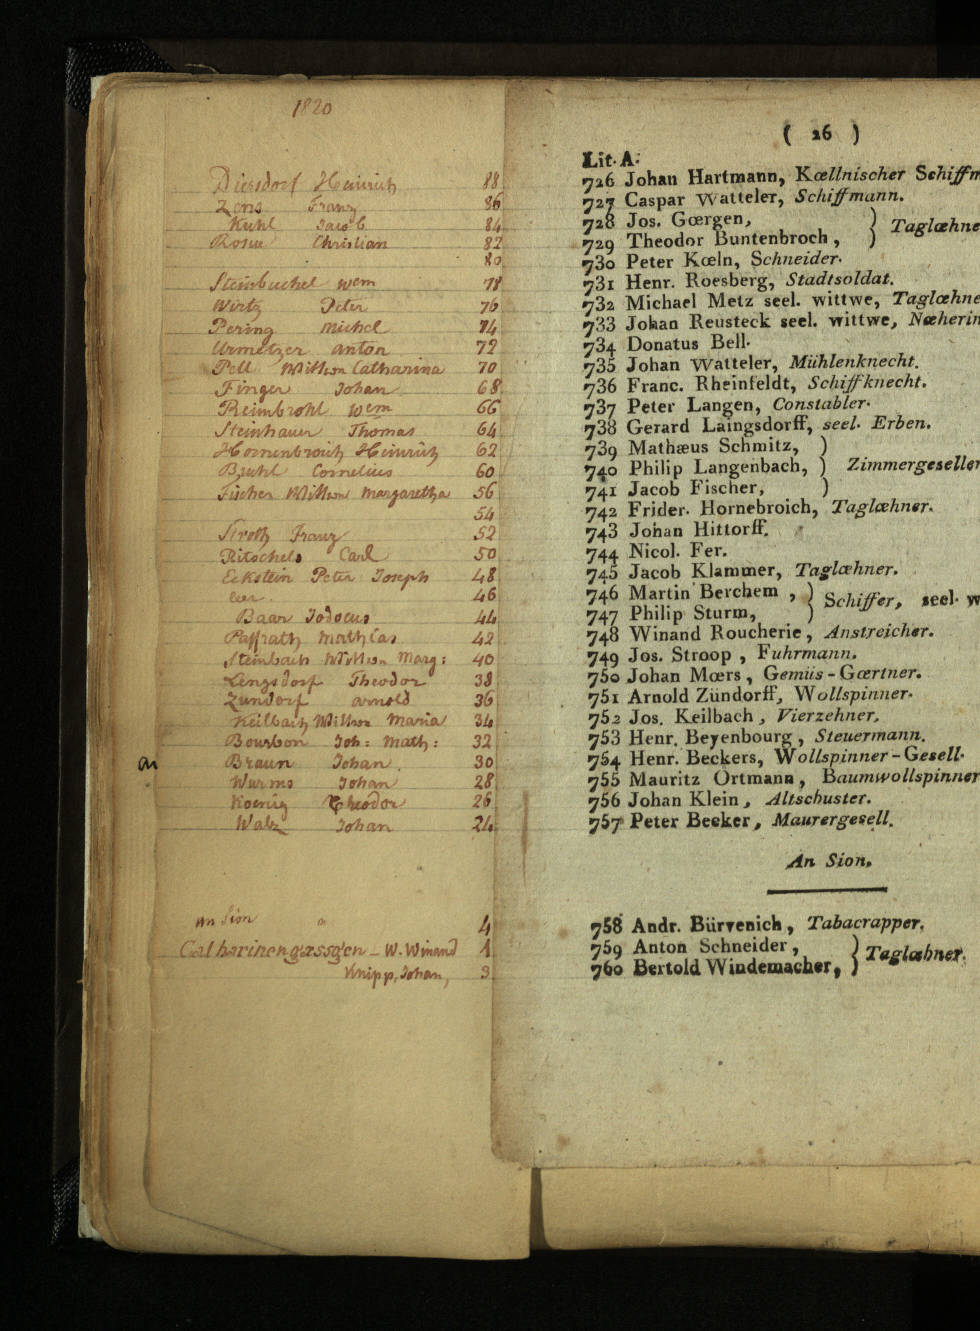 1820
Diersdorf Heinrich 88
Zens Franz 86
Kuhl Jacob 84
Rosue Christian 82
80
Steinbuchel Wem 78
Wirtz Peter 76
Pering Michel 74
Urmetzer Anton 72
Pell Wittwe Catharina 70
Finger Johan 68
Reimbrohl Wem 66
Steinhauer Thomas 64
Hornenbroich Heinrich 62
Bruhl Cornelius 60
Fischer Wittwe Margaretha 56
54
Stroth Franz 52
Ritschels Carl 50
Eckstein Peter Joseph 48
leer 46
Baar Jodocus 44
Paffrath Mathias 42
Steinbach Wittwe Marg: 40
Lengsdorf Theodor 38
Zundorf Arnold 36
Keilbach Wittwe Maria 34
Bourbon Joh: Math: 32
Braun Johan 30
Wurms Johan 28
Koenig Theodor 26
Walz Johan 24
an Sion 4
Catharinengässgen – W. Winand 1
Knipp, Johan, 3
( 26 )
Lit. A.
726 Johan Hartmann, Kœllnischer Schiffm
727 Caspar Watteler, Schiffmann.
728 Jos. Gœrgen, ) Taglœhne
729 Theodor Buntenbroch, )
730 Peter Kœln, Schneider.
731 Henr. Roesberg, Stadtsoldat.
732 Michael Metz seel. wittwe, Taglœhne
733 Johan Reusteck seel. wittwe, Næherin
734 Donatus Bell.
735 Johan Watteler, Mühlenknecht.
736 Franc. Rheinfeldt, Schiffknecht.
737 Peter Langen, Constabler.
738 Gerard Laingsdorff, seel. Erben.
739 Mathæus Schmitz, )
740 Philip Langenbach, ) Zimmergeseller
741 Jacob Fischer, )
742 Frider. Hornebroich, Taglœhner.
743 Johan Hittorff.
744 Nicol. Fer.
745 Jacob Klammer, Taglœhner.
746 Martin Berchem , ) Schiffer, seel. w
747 Philip Sturm, )
748 Winand Roucherie, Anstreicher.
749 Jos. Stroop , Fuhrmann.
750 Johan Mœrs, Gemüs-Gœrtner.
751 Arnold Zündorff, Wollspinner.
752 Jos. Keilbach, Vierzehner.
753 Henr. Beyenbourg, Steuermann.
754 Henr. Beckers, Wollspinner-Gesell.
755 Mauritz Ortmann, Baumwollspinner
756 Johan Klein, Altschuster.
757 Peter Becker, Maurergesell.
An Sion.
758 Andr. Bürvenich, Tabacrapper.
759 Anton Schneider, } Taglœhner.
760 Bertold Windemacher, )